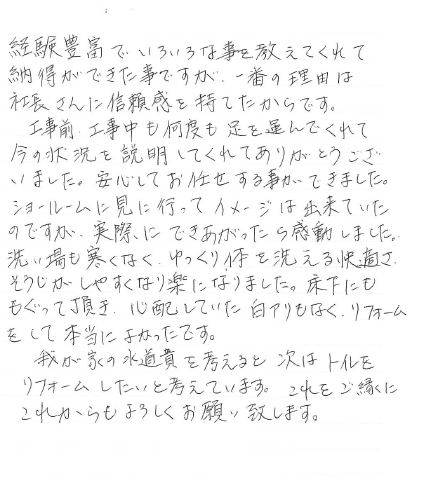 経験豊富でいろいろな事を教えてくれて
納得ができた事ですが、一番の理由は
社長さんに信頼感を持てたからです。
工事前、工事中も何度も足を運んでくれて
今の状況を説明してくれてありがとうござ
いました。安心してお任せする事ができました。
ショールームに見に行ってイメージは出来ていた
のですが、実際にできあがったら感動しました。
洗い場も寒くなく、ゆっくり体を洗える快適さ、
そうじがしやすくなり楽になりました。床下にも
もぐって頂き、心配していた白アリもなく、リフォーム
をして本当によかったです。
我が家の水道費を考えると次はトイレを
リフォームしたいと考えています。これをご縁に
これからもよろしくお願い致します。